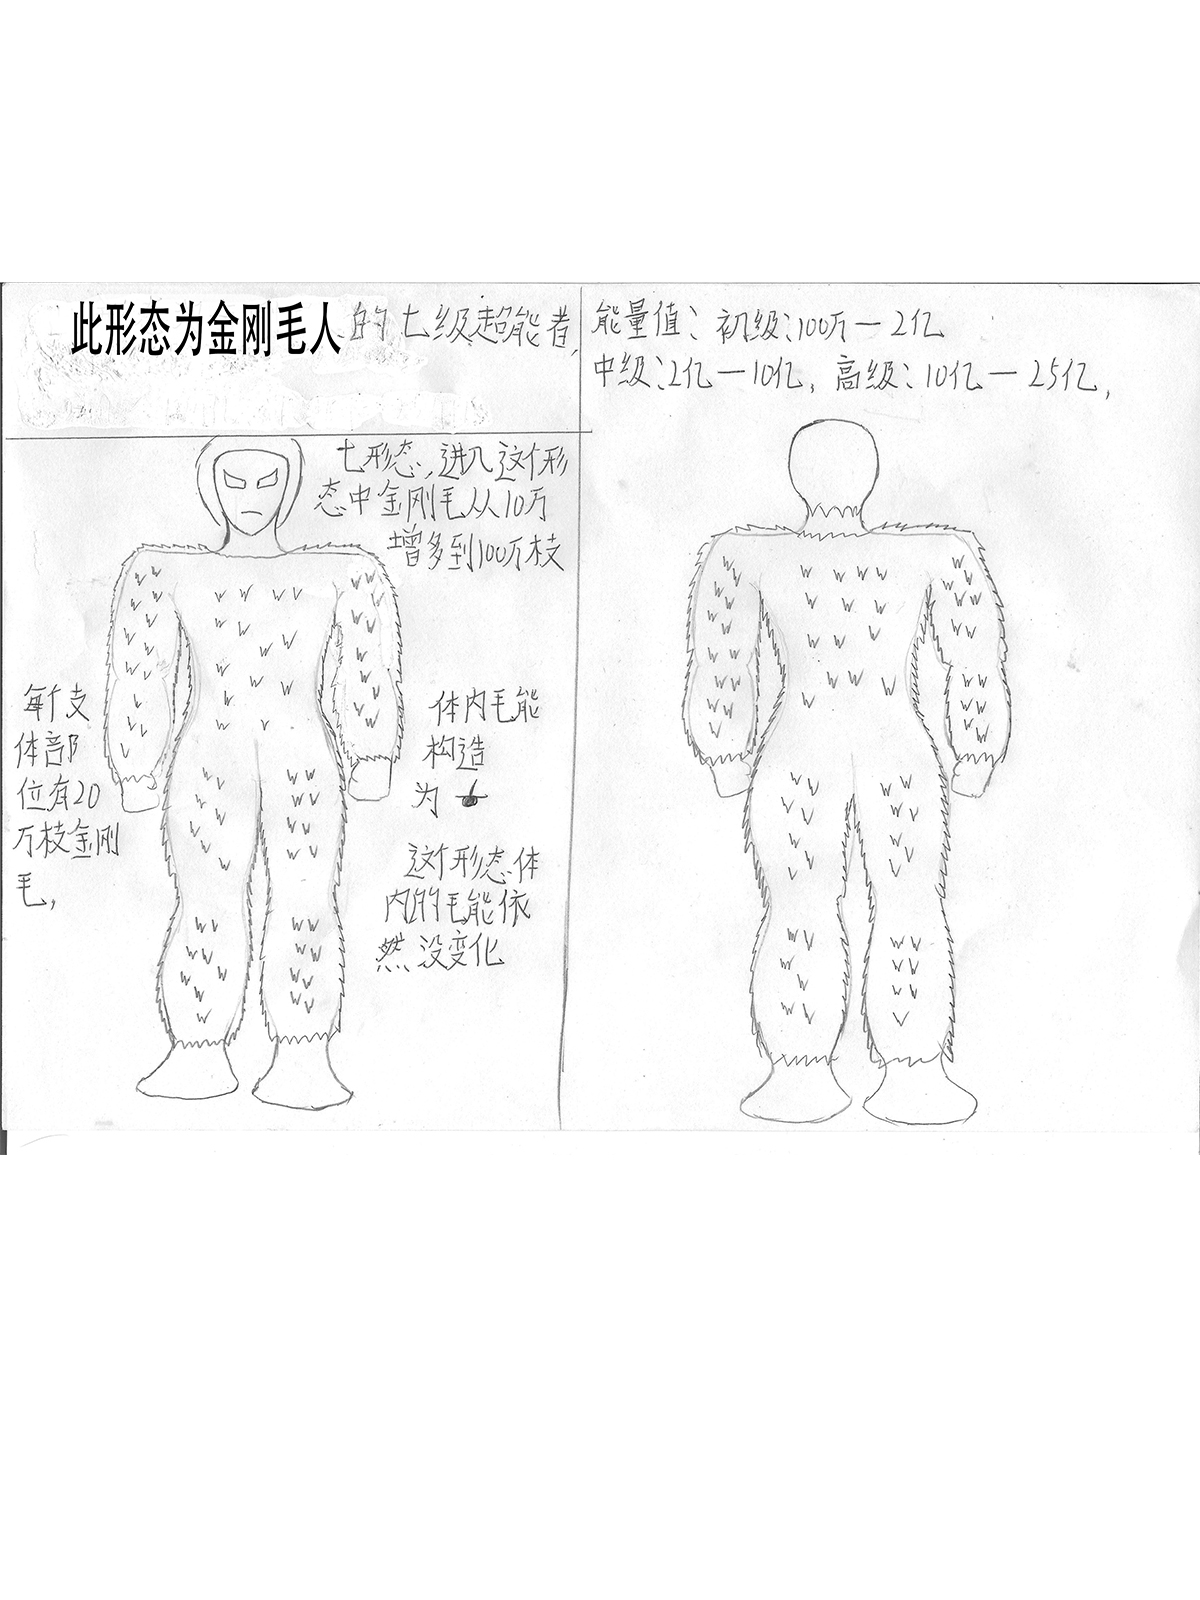 此形态为金刚毛人的七级超能者,
能量值:初级:100万—2亿
中级:2亿—10亿,高级:10亿—25亿,
七形态,进入这个形
态中金刚毛从10万
增多到100万枝
每个支
体部
位有20
万枝金刚
毛,
体内毛能
构造
为
这个形态体
内的毛能依
然没变化